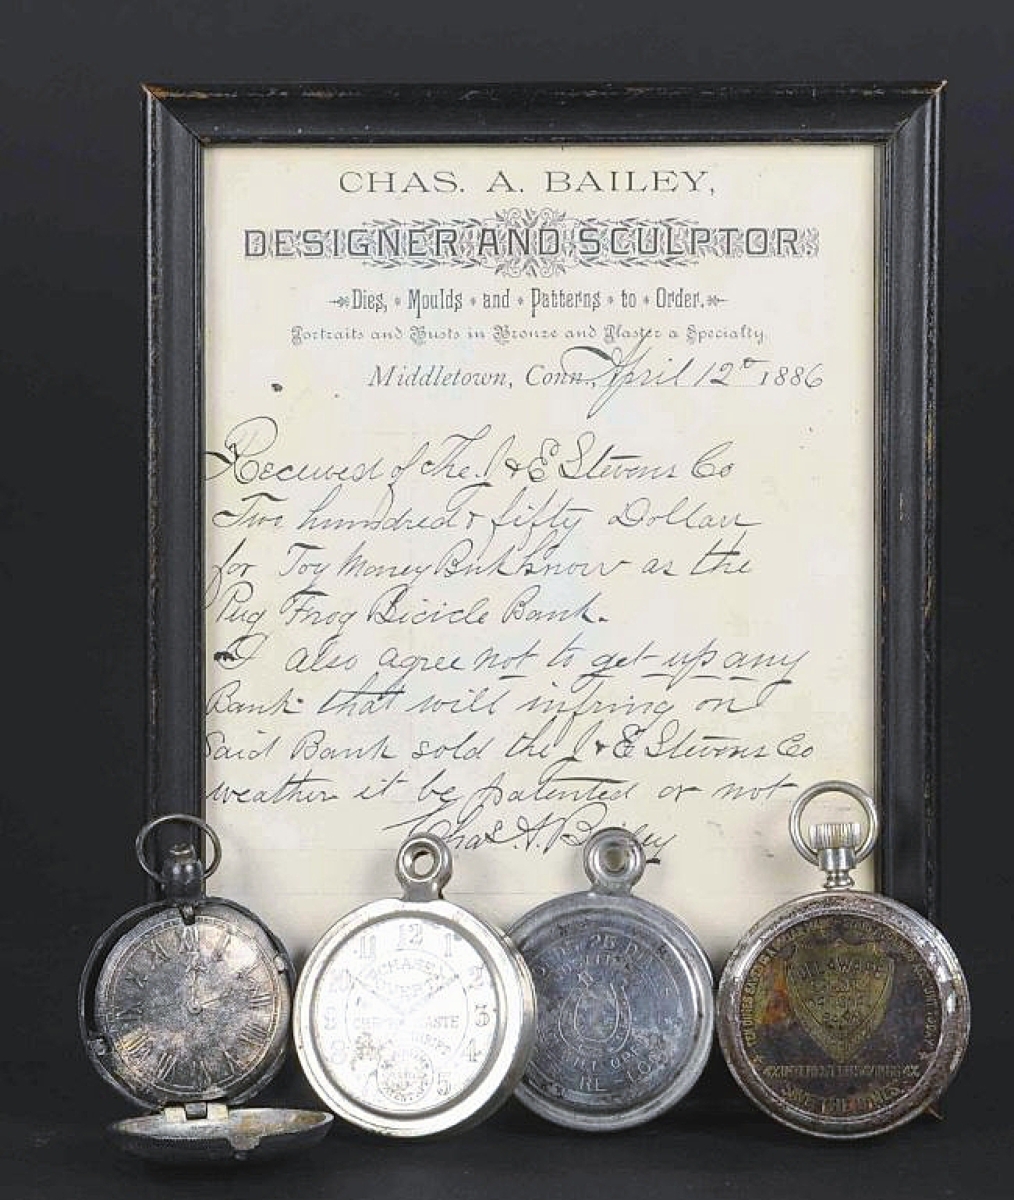 CHAS. A. BAILEY,
DESIGNER AND SCULPTOR.
Dies, Moulds and Patterns to Order.
Portraits and Busts in Bronze and Plaster a Specialty.
Middletown, Conn., April 12 1886
Received of The J & E Stevens Co
Two hundred & fifty Dollars
for Toy Money Bnk know as the
Pug Frog Bicicle Bank.
I also agree not to get up any
Bank that will infring on
Said Bank sold the J & E Stevens Co
weather it be patented or not
Chas. A. Bailey
11 12 1
10 2
3
8 4
5
CHASE
TASTE
25
SAVE THE DIMES